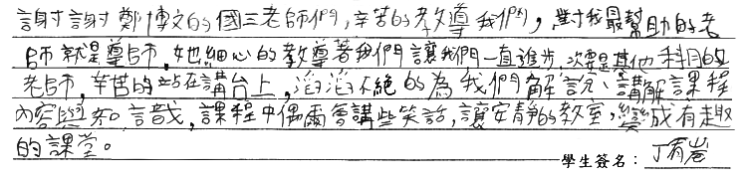 謝謝鄭博文的國三老師們,辛苦的教導我們,對我最幫助的老
師就是導師,她細心的教導著我們讓我們一直進步,次要是其他科目的
老師,辛苦的站在講台上,滔滔不絕的為我們解說、講解課程
內容與知識,課程中偶爾會講些笑話,讓安靜的教室,變成有趣
的課堂。
學生簽名:丁